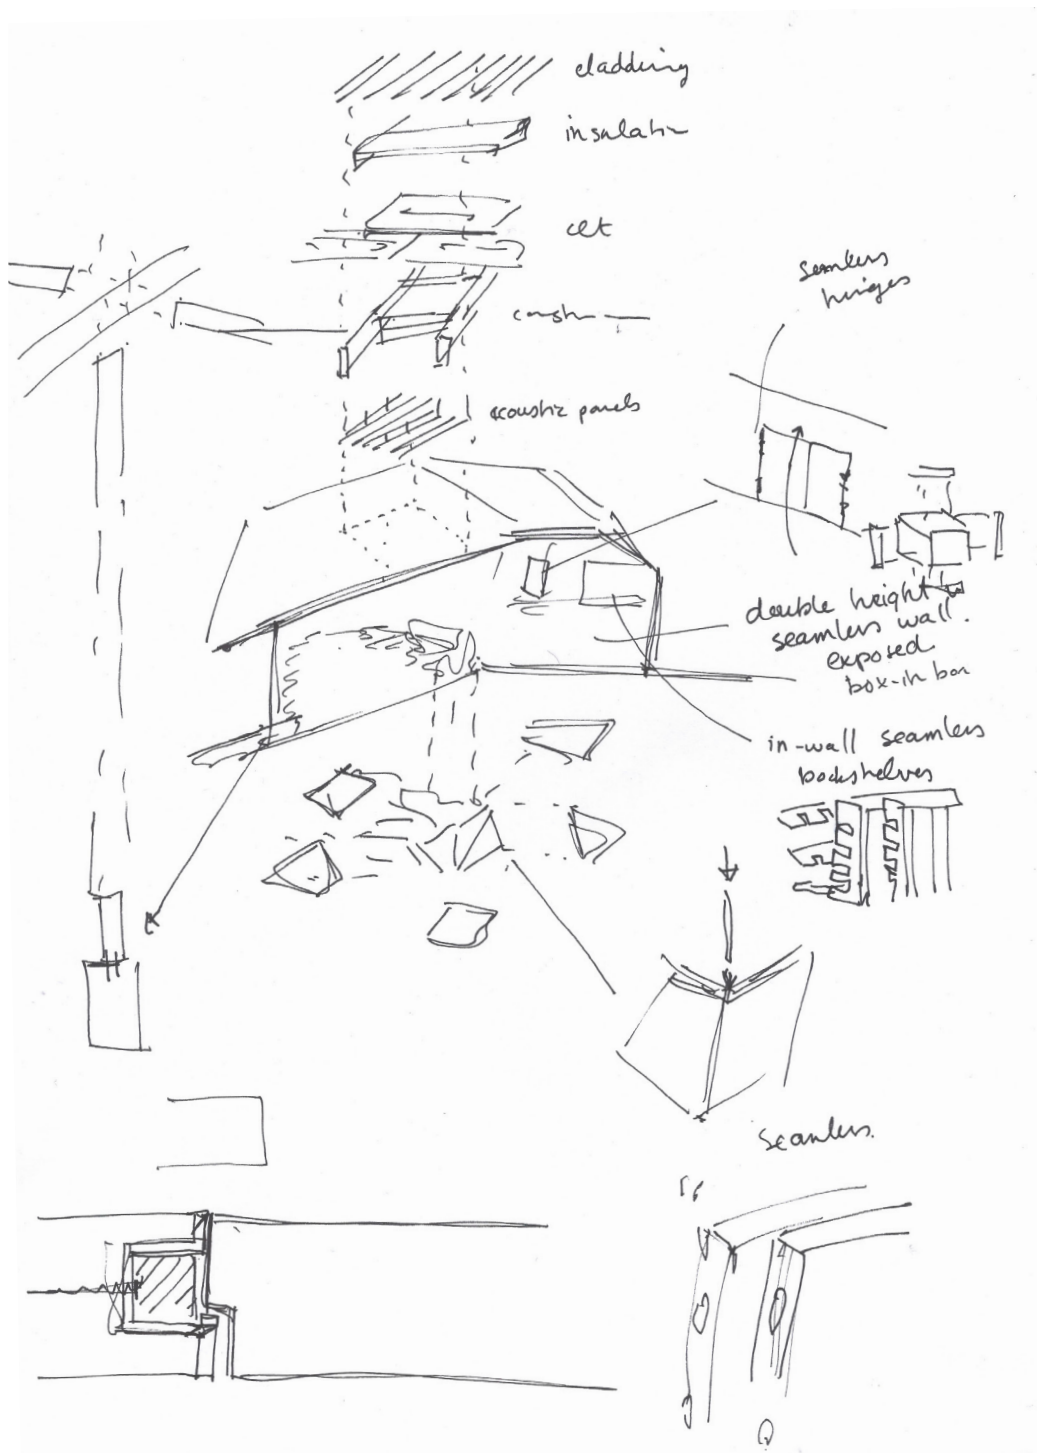 cladding
insulation
clt
acoustic panels
seamless
hinges
double height
seamless wall.
exposed
box-in box
in-wall seamless
bookshelves
seamless.